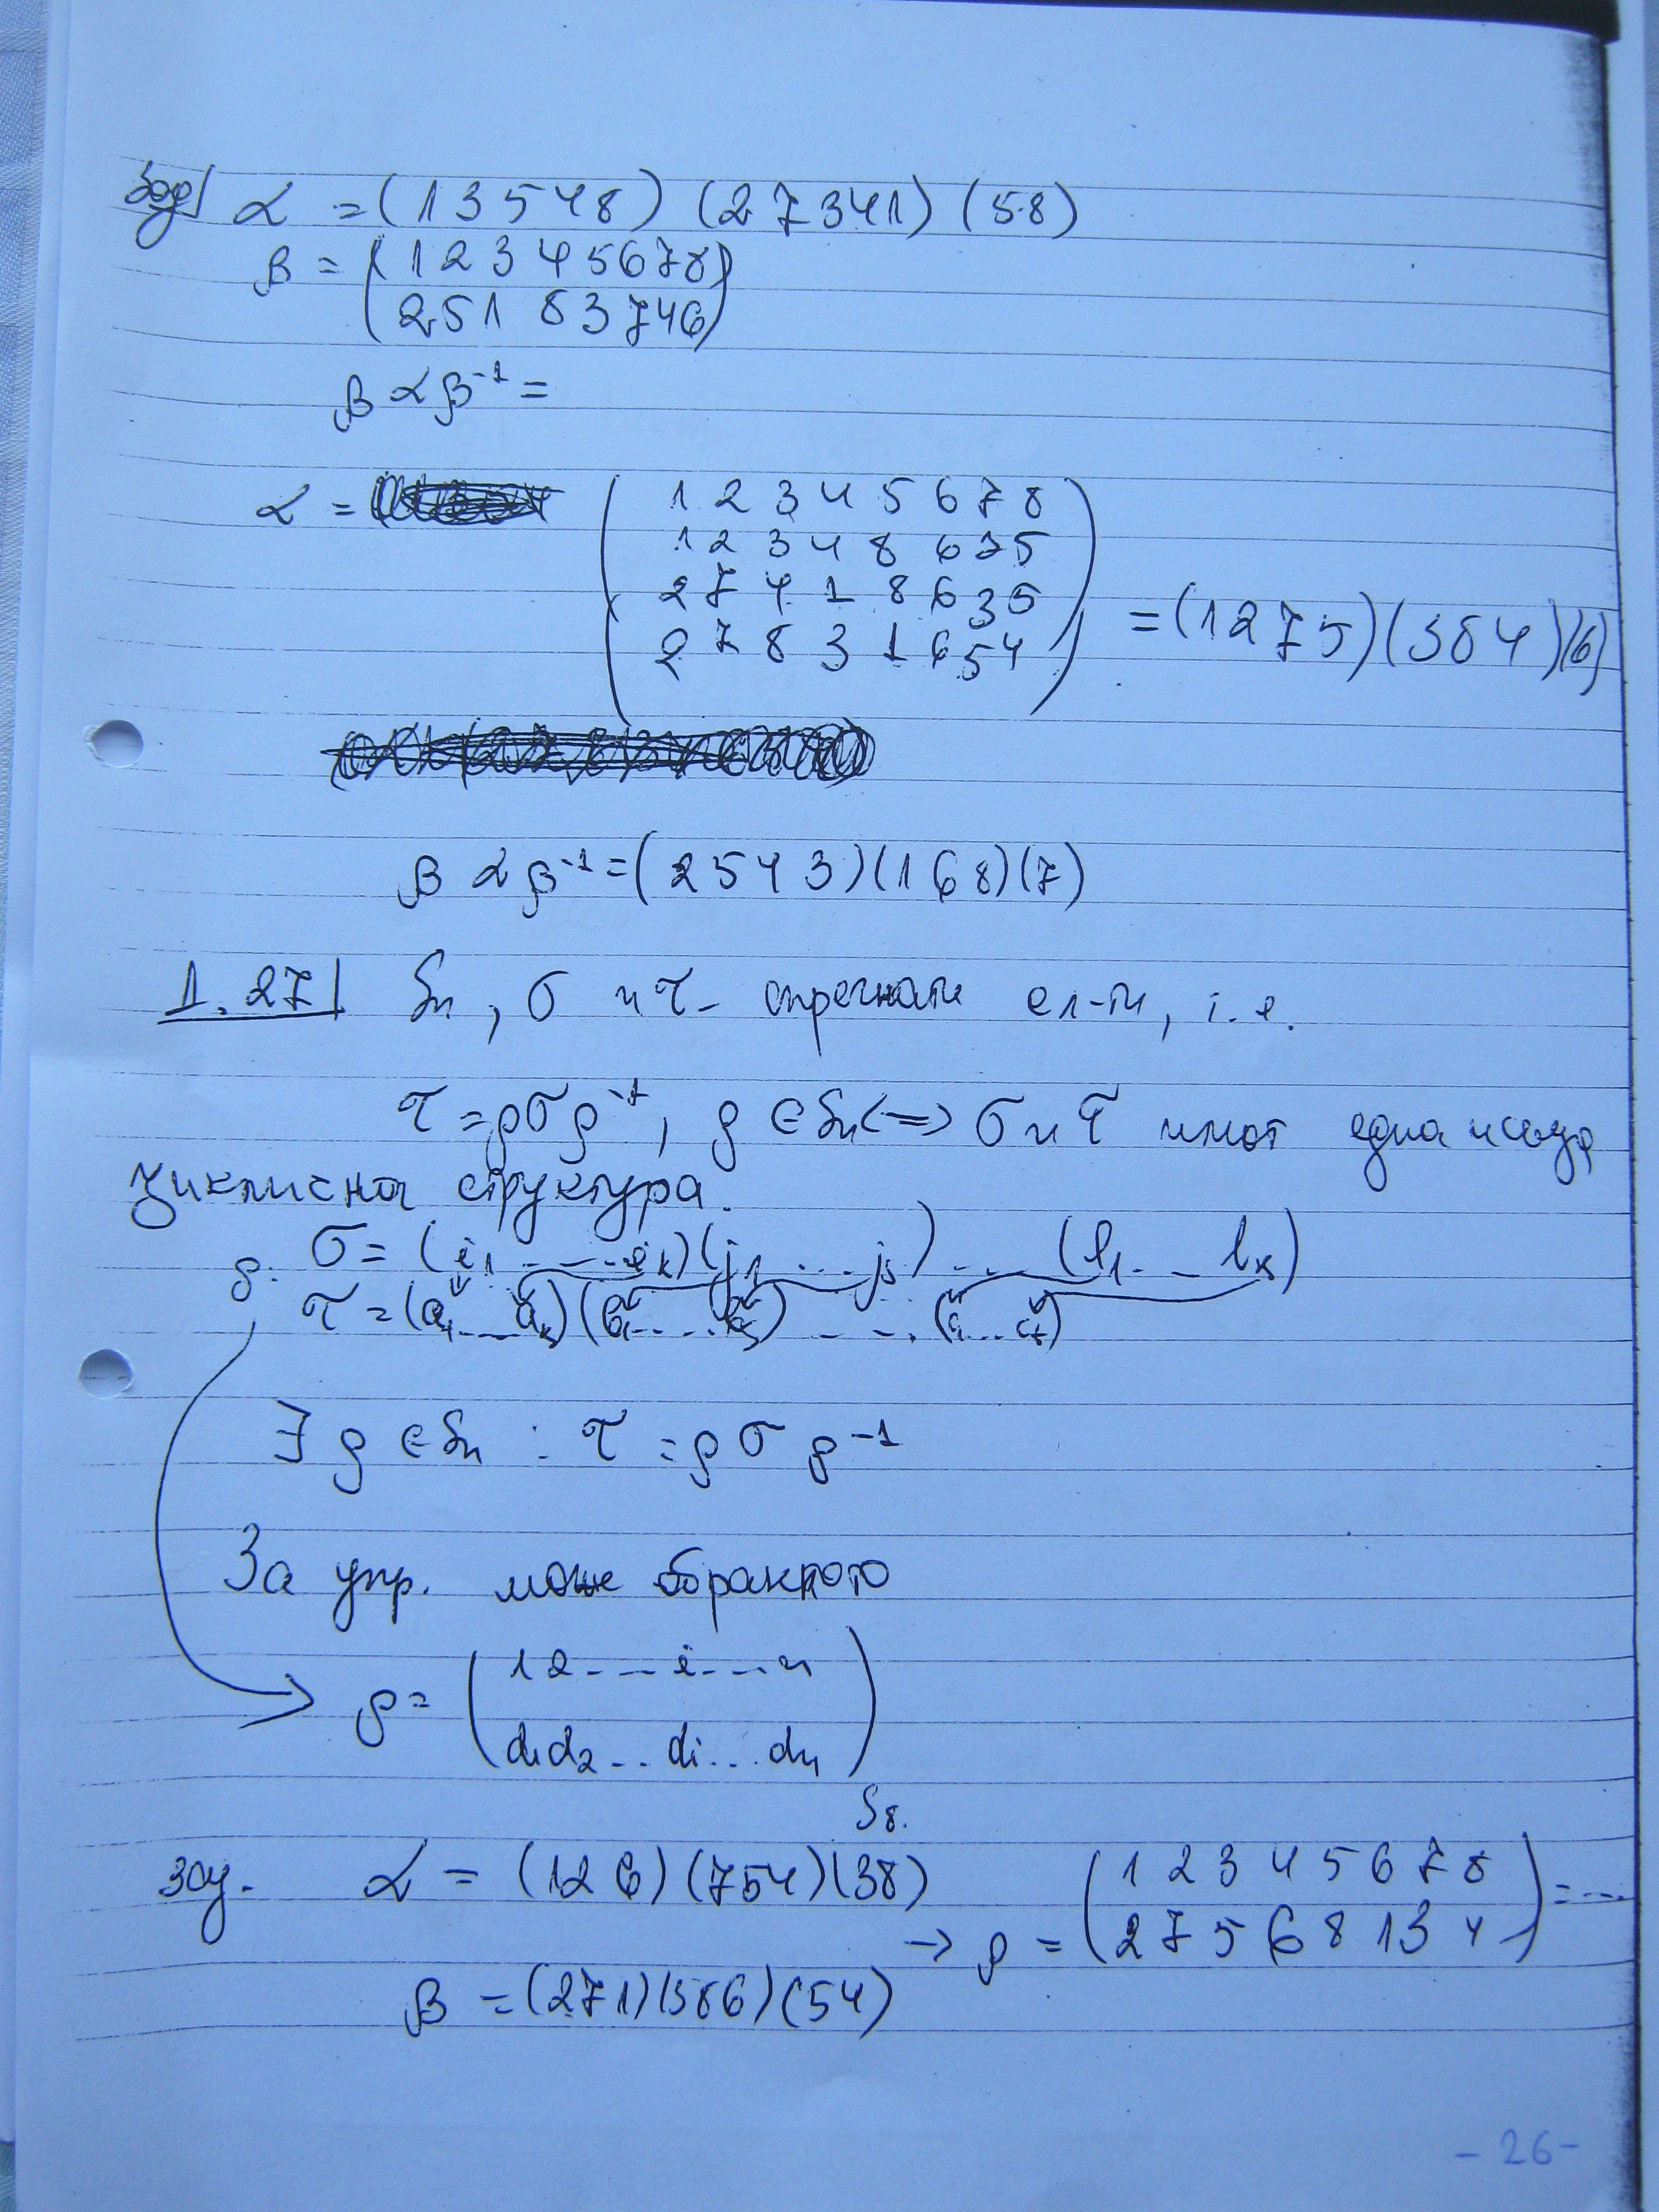 Зад| α = (1 3 5 4 8) (2 7 3 4 1) (5 8)
β = (1 2 3 4 5 6 7 8)
(2 5 1 8 3 7 4 6)
β α β⁻¹ =
α = (1 2 3 4 5 6 7 8)
1 2 3 4 8 6 7 5
2 7 4 1 8 6 3 5
2 7 8 3 1 6 5 4 = (1 2 7 5) (3 8 4) (6)
β α β⁻¹ = (2 5 4 3) (1 6 8) (7)
1.27| Sn, σ и τ - спрегнати ел-ти, i.e.
τ = ρσρ⁻¹, ρ ∈ Sn <=> σ и τ имат една и съща
циклисна структура.
ρ: σ = (i₁ ... iₖ) (j₁ ... jₛ) ... (l₁ ... lₓ)
τ = (a₁ ... aₖ) (b₁ ... bₛ) ... (c₁ ... cₓ)
∃ ρ ∈ Sn : τ = ρ σ ρ⁻¹
За упр. може обратното
ρ = (1 2 ... i ... n)
(d₁ d₂ ... dᵢ ... dₙ)
S₈.
зад. α = (1 2 6) (7 5 4) (3 8)
→ ρ = (1 2 3 4 5 6 7 8) = ...
(2 7 5 6 8 1 3 4)
β = (2 7 1) (3 8 6) (5 4)
- 26 -